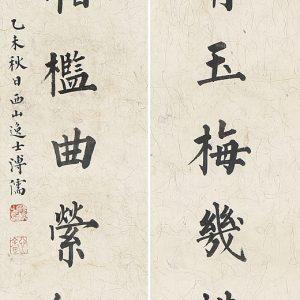 玉梅幾
檻曲縈
乙未秋日西山逸士溥儒